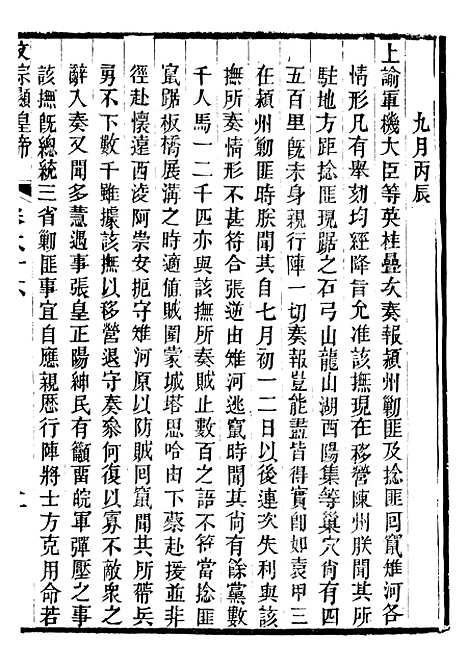 九月丙辰
上諭軍機大臣等英桂疊次奏報潁州勦匪及捻匪回竄雉河各
情形凡有舉劾均經降旨允准該撫現在移營陳州朕聞其所
駐地方距捻匪現踞之石弓山龍山湖西陽集等巢穴尚有四
五百里旣未身親行陣一切奏報豈能盡皆得實卽如袁甲三
在潁州勦匪時朕聞其自七月初一二日以後連次失利與該
撫所奏情形不甚符合張逆由雉河逃竄時聞其尚有餘黨數
千人馬一二千匹亦與該撫所奏賊止數百之語不符當捻匪
竄踞板橋展溝之時適値賊圍蒙城塔思哈由下蔡赴援並非
徑赴懷遠西淩阿崇安扼守雉河原以防賊回竄聞其所帶兵
勇不下數千雖據該撫以移營退守奏叅何復以寡不敵衆之
辭入奏又聞多慧遇事張皇正陽紳民有籲畱皖軍彈壓之事
該撫旣總統三省勦匪事宜自應親歷行陣將士方克用命若
文宗顯皇帝
卷六十六
十一